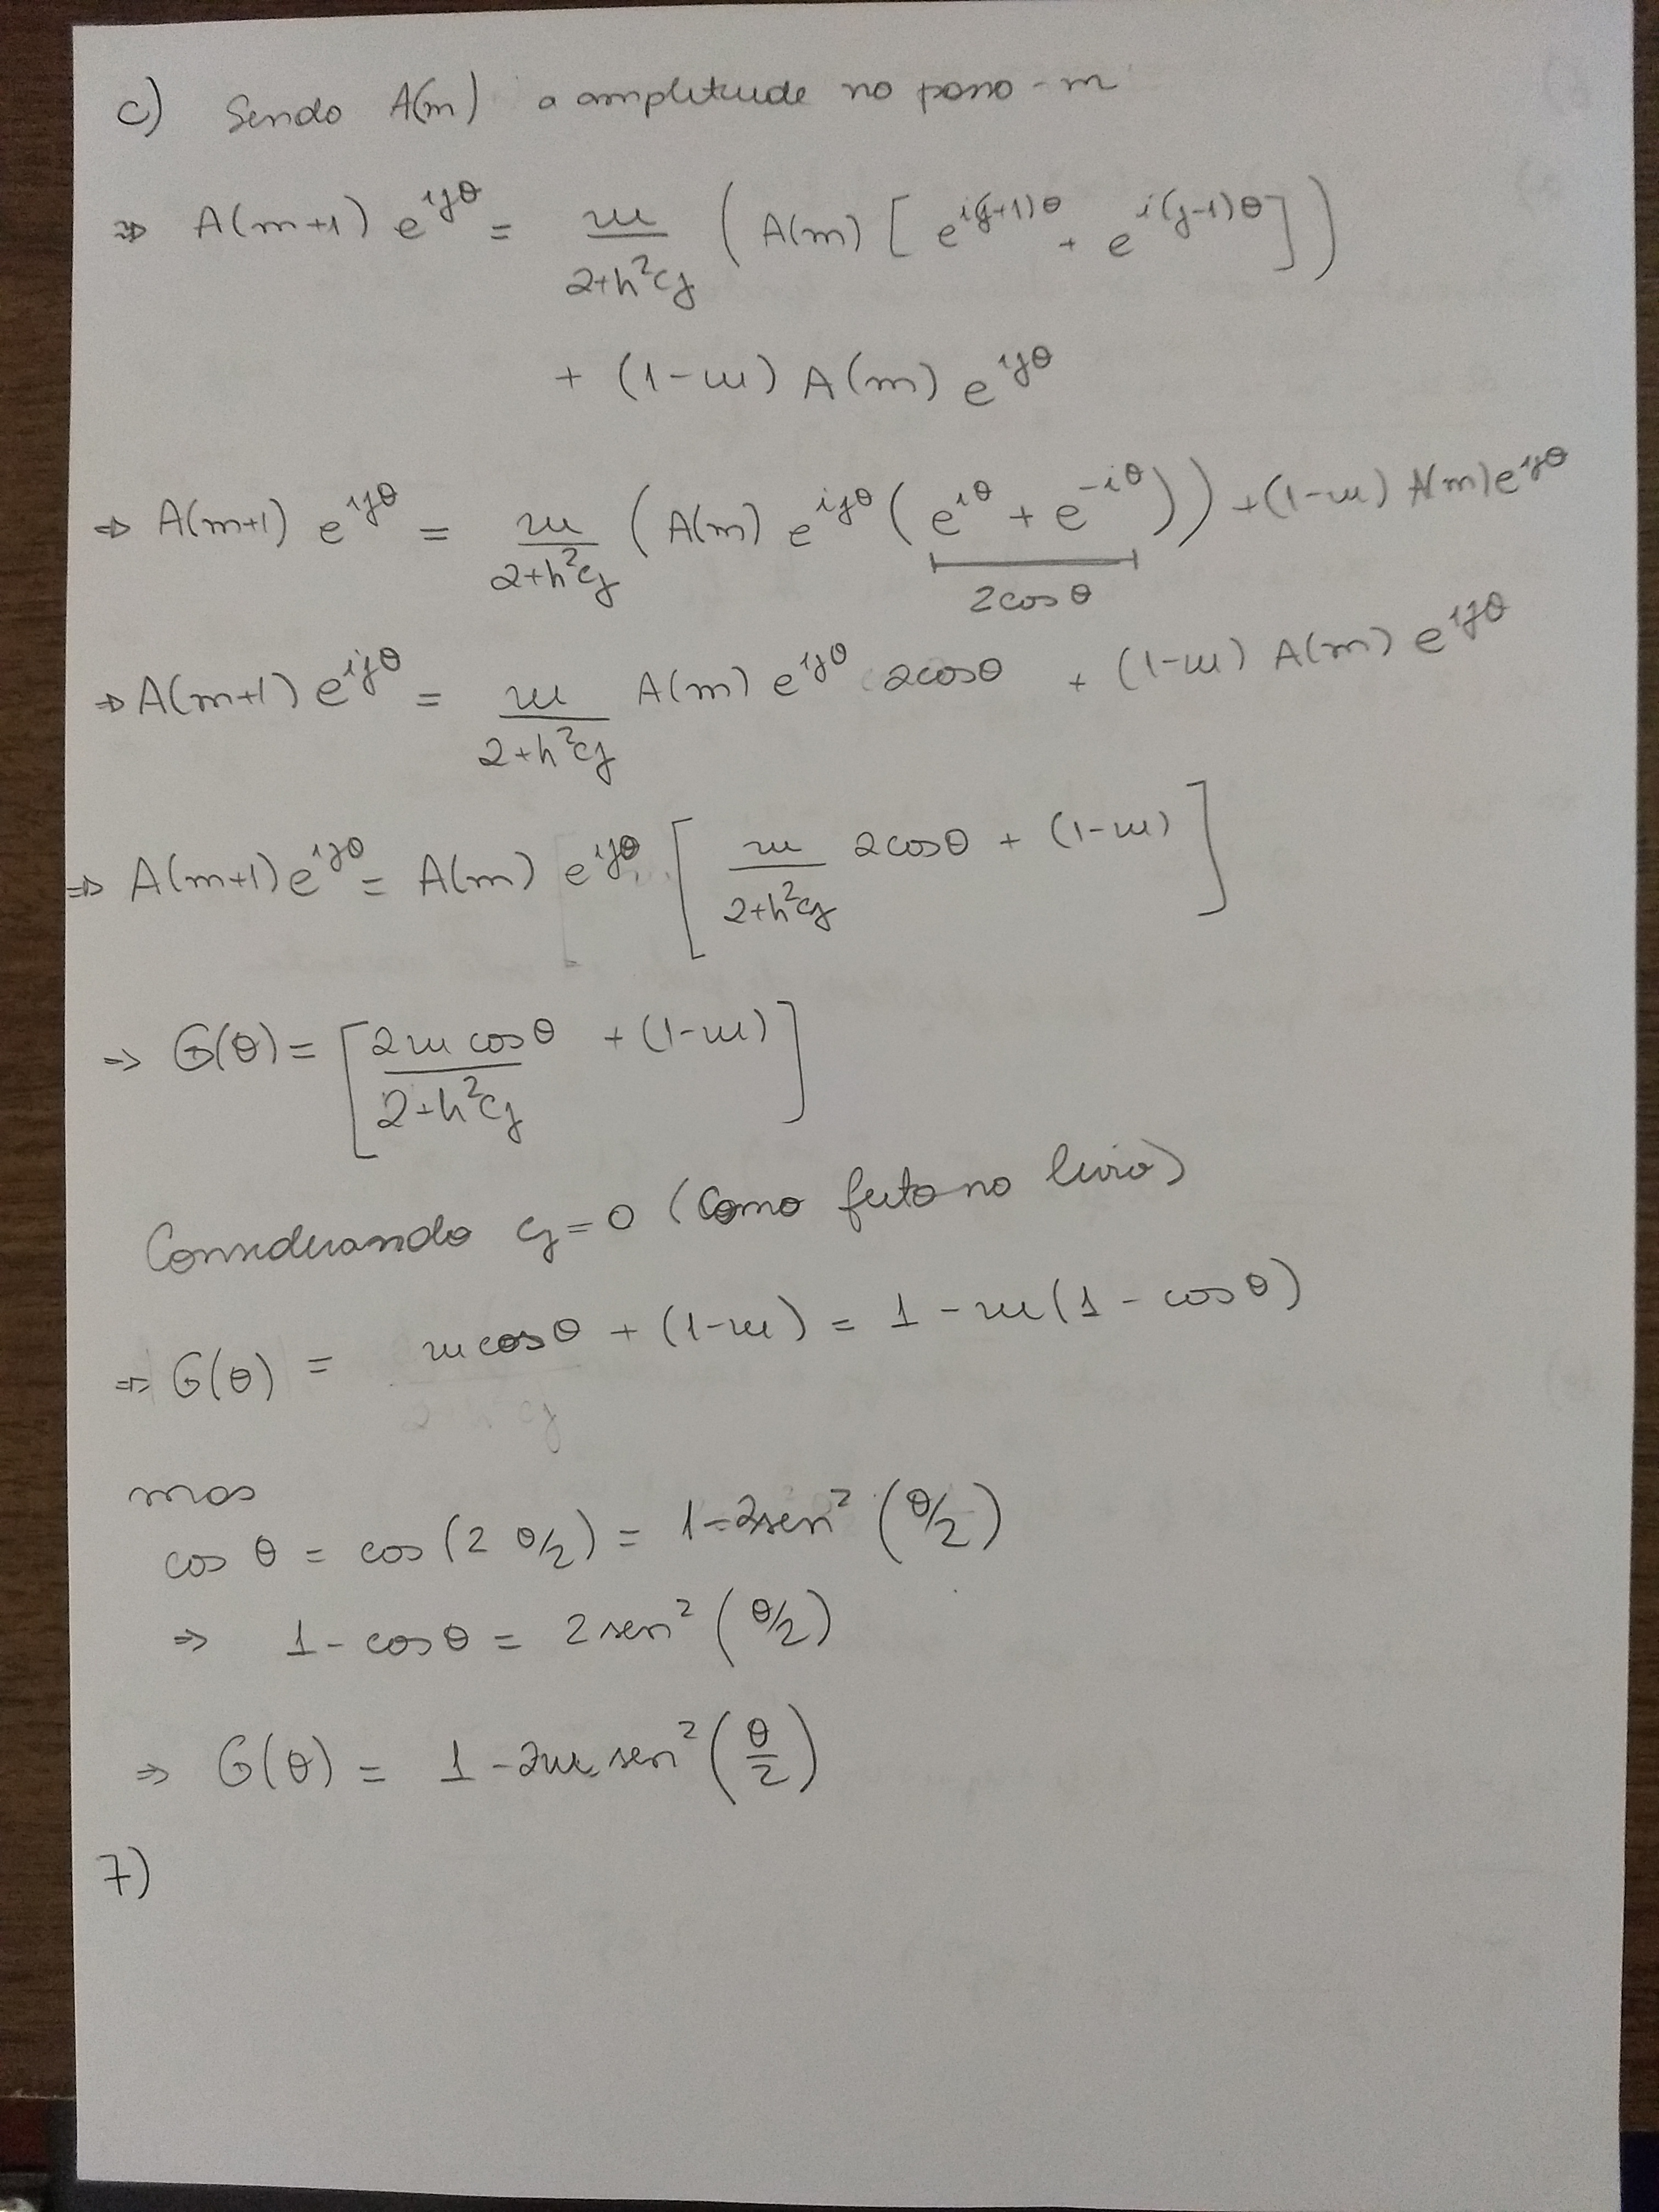 c) Sendo A(m) a amplitude no passo - m
⇒ A(m+1) e^{ijθ} = \frac{w}{2+h^2c_j} ( A(m) [ e^{i(j+1)θ} + e^{i(j-1)θ} ] )
+ (1-w) A(m) e^{ijθ}
⇒ A(m+1) e^{ijθ} = \frac{w}{2+h^2c_j} ( A(m) e^{ijθ} ( e^{iθ} + e^{-iθ} ) ) + (1-w) A(m) e^{ijθ}
2cosθ
⇒ A(m+1) e^{ijθ} = \frac{w}{2+h^2c_j} A(m) e^{ijθ} 2cosθ + (1-w) A(m) e^{ijθ}
⇒ A(m+1) e^{ijθ} = A(m) e^{ijθ} [ \frac{w}{2+h^2c_j} 2cosθ + (1-w) ]
⇒ G(θ) = [ \frac{2w cosθ}{2+h^2c_j} + (1-w) ]
Considerando c_j = 0 (Como feito no livro)
⇒ G(θ) = w cosθ + (1-w) = 1 - w(1 - cosθ)
mas
cos θ = cos (2 θ/2) = 1 - 2sen^2 (θ/2)
⇒ 1 - cosθ = 2 sen^2 (θ/2)
⇒ G(θ) = 1 - 2w sen^2 (\frac{θ}{2})
7)